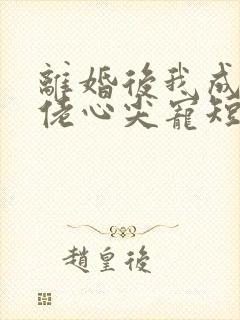 離婚後我成
佬心尖寵短
趙皇後